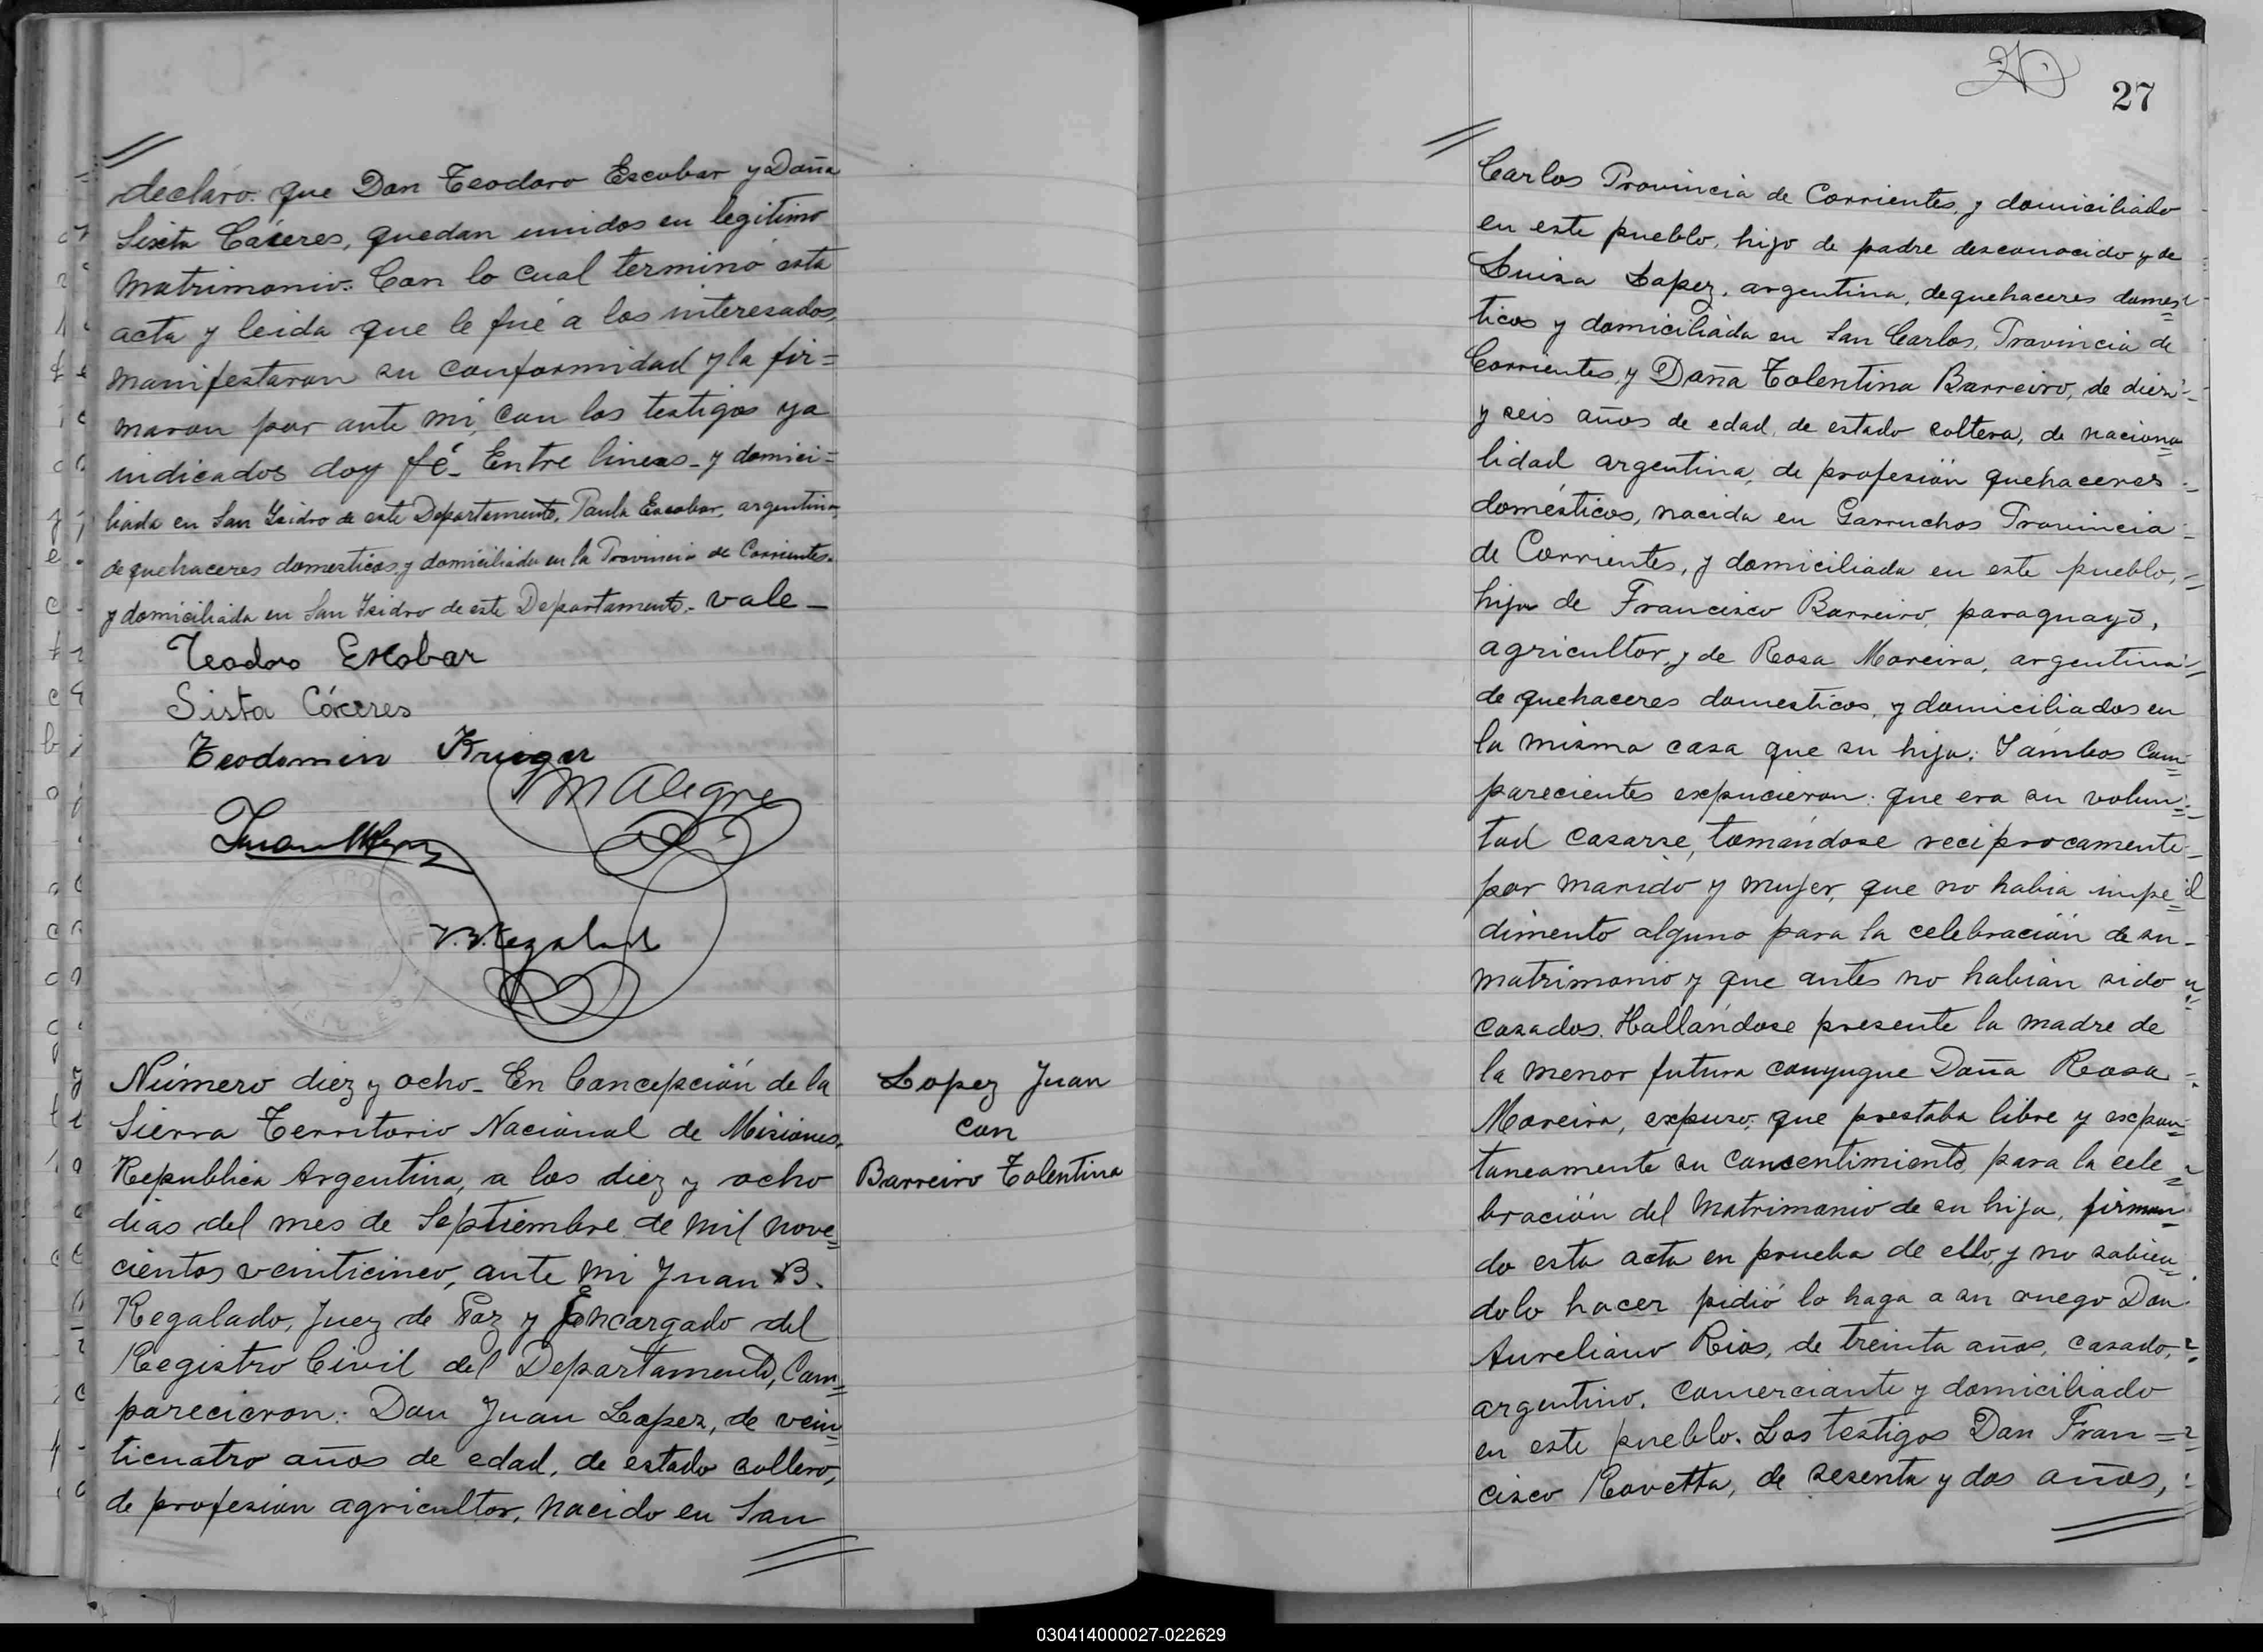 declaro: que Don Teodoro Escobar y Doña
Sixta Cáceres, quedan unidos en legitimo
matrimonio. Con lo cual terminó esta
acta y leida que le fué a los interesados,
manifestaron su conformidad y la fir=
maron por ante mi, con los testigos ya
indicados doy fé_ Entre lineas_ y domici=
liada en San Isidro de este Departamento, Paula Escobar, argentina,
de quehaceres domesticos y domiciliada en la Provincia de Corrientes.
y domiciliada en San Isidro de este Departamento.- vale_
Teodoro Escobar
Sista Cáceres
Teodomiro Krieger
M Alegre
Juan
J.B. Regalado
REGISTRO CIVIL
MISIONES
Número diez y ocho_ En Concepción de la
Sierra Territorio Nacional de Misiones,
Republica Argentina, a los diez y ocho
dias del mes de Septiembre de mil nove=
cientos veinticinco, ante mi Juan B.
Regalado, Juez de Paz y Encargado del
Registro Civil del Departamento, Com=
parecieron: Don Juan Lopez, de vein=
ticuatro años de edad, de estado soltero,
de profesion agricultor, nacido en San
Lopez Juan
con
Barreiro Tolentina
27
Carlos Provincia de Corrientes, y domiciliado
en este pueblo, hijo de padre desconocido y de
Luisa Lopez, argentina, de quehaceres domes=
ticos y domiciliada en San Carlos, Provincia de
Corrientes, y Doña Tolentina Barreiro, de diesi=
y seis años de edad, de estado soltera, de naciona=
lidad argentina, de profesión quehaceres
domésticos, nacida en Garruchos Provincia
de Corrientes, y domiciliada en este pueblo,
hija de Francisco Barreiro, paraguayo,
agricultor, y de Rosa Moreira, argentina
de quehaceres domesticos, y domiciliados en
la misma casa que su hija: Y ambos Com=
parecientes expucieron: que era su volun=
tad casarse, tomándose reciprocamente
por marido y mujer, que no habia impe=
dimento alguno para la celebración de su
matrimonio y que antes no habian sido
casados. Hallándose presente la madre de
la menor futura conyugue Doña Rosa
Moreira, expuso: que prestaba libre y expon=
taneamente su consentimiento para la cele=
bración del matrimonio de su hija, firman=
do esta acta en prueba de ello, y no sabien=
dolo hacer pidió lo haga a su ruego Don
Aureliano Rios, de treinta años, casado,
argentino, comerciante y domiciliado
en este pueblo. Los testigos Don Fran=
cisco Rovetta, de sesenta y dos años,
030414000027-022629